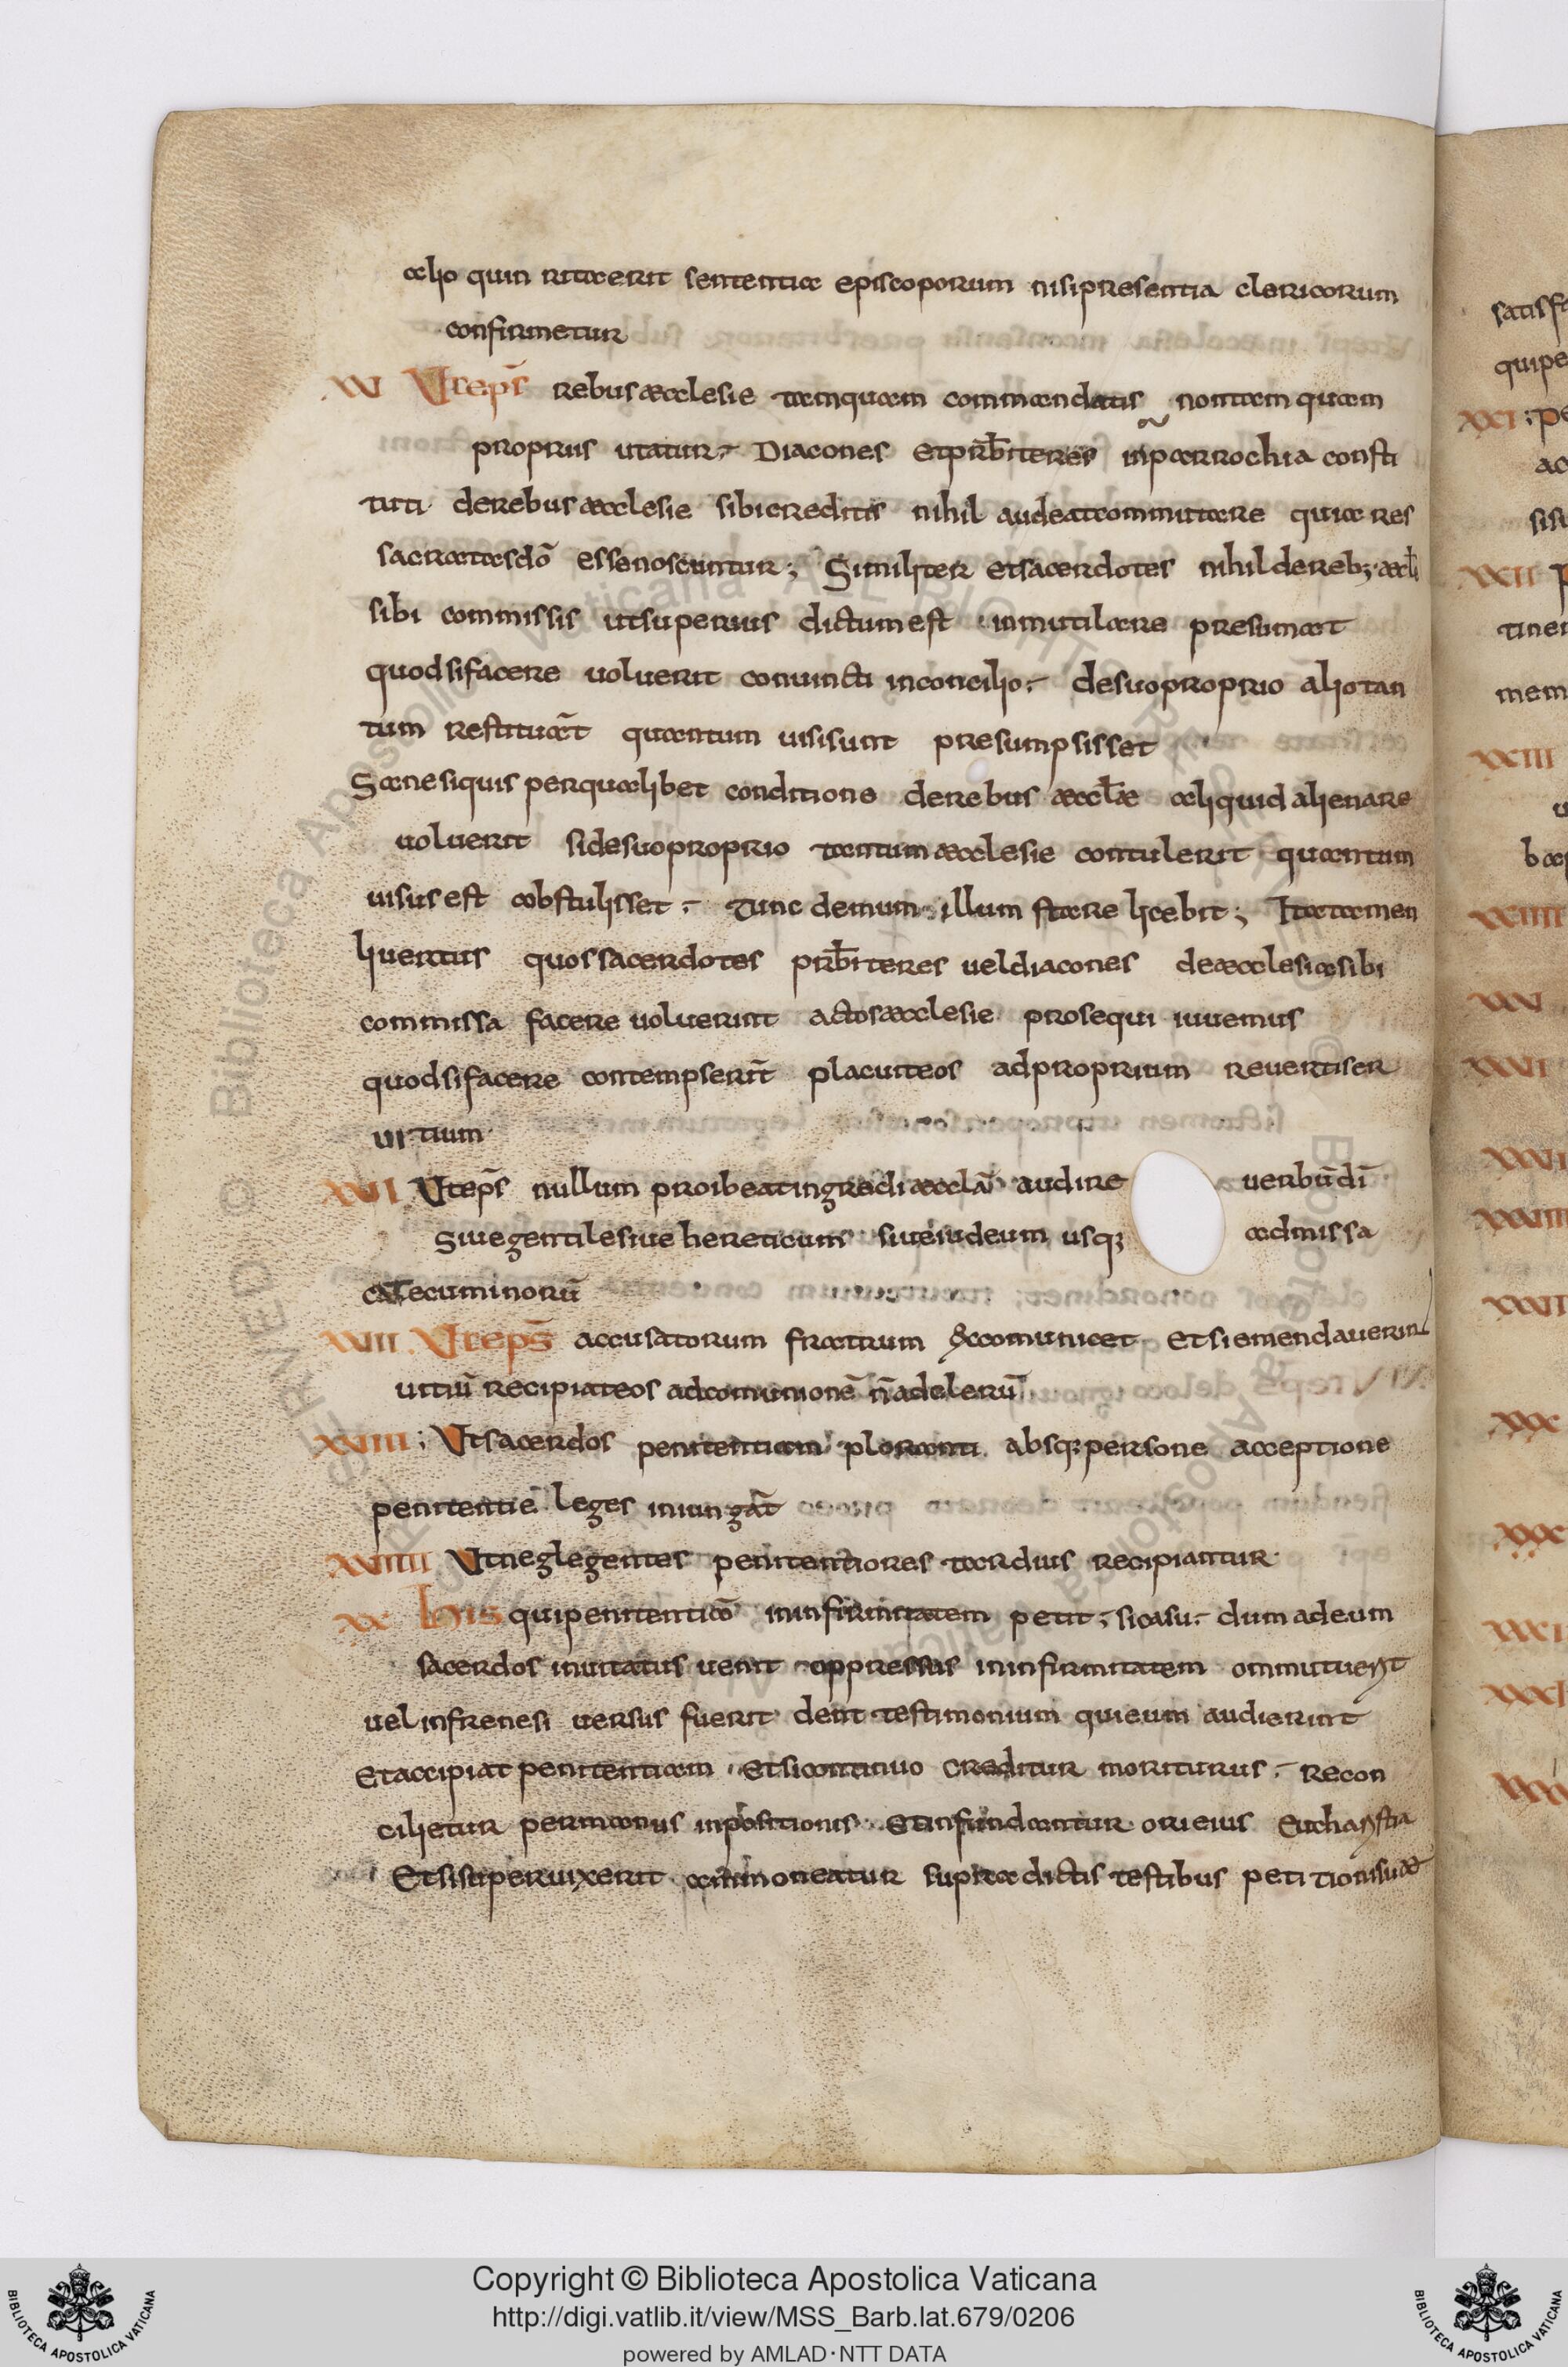 alio quin ritacerit sententia episcoporum nisi presentia clericorum
confirmetur
XVI Ut ep̄s rebus æcclesie tamquam commendatis non tam quam
propriis utatur. Diacones et prb̄iteres in parrochia consti
tuti de rebus æcclesie sibi creditis nihil audeat commutare quia res
sacratas dō esse noscuntur; Similiter et sacerdotes nihil de reb; æccli
sibi commissis ut superius dictum est inmutilare presumat
quod si facere voluerit convincti in concilio. de suo proprio alio tan
tum restituat̄ quantum visi sunt presumpsisset
Sane si quis per qualibet conditione de rebus æccl̄æ aliquid alienare
voluerit si de suo proprio tantum æcclesie contulerit quantum
visus est abstulisset. Tunc demum illum stare licebit; Ita tamen
livertus quos sacerdotes prb̄iteres vel diacones de æcclesia sibi
commissa facere voluerint actos æcclesie prosequi iuvemus
quod si facere contemperserin̄t placuit eos ad proprium reverti ser
vitium
XVII Ut ep̄s nullum proibeat ingredi æcclā audire verbū dī
Sive gentile sive hereticum sive iudeum usq; ad missa
catecuminorū
XVIII Ut ep̄s accusatorum fratrum excomunicet et si emendaverint
vitiū recipiat eos ad comunionē n̄ ad clerū
XVIIII; Ut sacerdos penitentiam ploranti absq; persone acceptione
penitentie leges iniungat̄
XVIIII Ut neglegentes penitentiores tardius recipiantur
XX His qui penitentiā in infirmitatem petit; si casu. dum ad eum
sacerdos invitatus venit oppressus in infirmitatem ommutuerit
vel in frenesi versus fuerit dent testimonium qui eum audierint
Et accipiat penitentiam Et si continuo creditur moriturus. recon
cilietur per manus inpositionis. Et infundantur ori eius Eucharistia
Et si supervixerit ammoneatur supra dictis testibus petitioni suæ
satisfa
quipe
XXI; pe
ac
sisu
XXII P
tiner
mem
XXIII
bap
XXIIII
XXV
XXVI
XXVII
XXVIII
XXVIIII
XXX
Copyright © Biblioteca Apostolica Vaticana
http://digi.vatlib.it/view/MSS_Barb.lat.679/0206
powered by AMLAD·NTT DATA
BIBLIOTECA APOSTOLICA VATICANA
BIBLIOTECA APOSTOLICA VATICANA